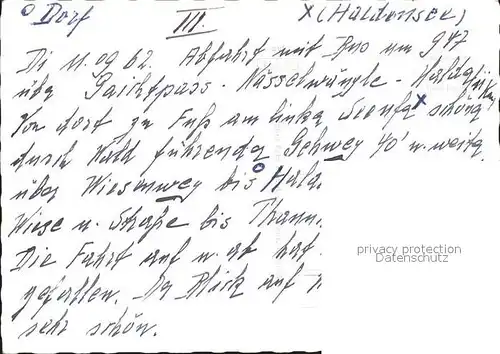 o Dorf III. x (Haldensee)
Di 11.09 62. Abfahrt mit Bus um 9 47
über Gaichtpass - Nesselwängle - Haldensee
Von dort zu Fuß am linken Seeufer x schöner
durch Wald führender Gehweg 40' u. weiter
über Wiesenweg bis o Hald
Wiese u. Straße bis Thann
Die Fahrt auf u. ab hat
gefallen. Der Blick auf
sehr schön.
privacy protection
Datenschutz